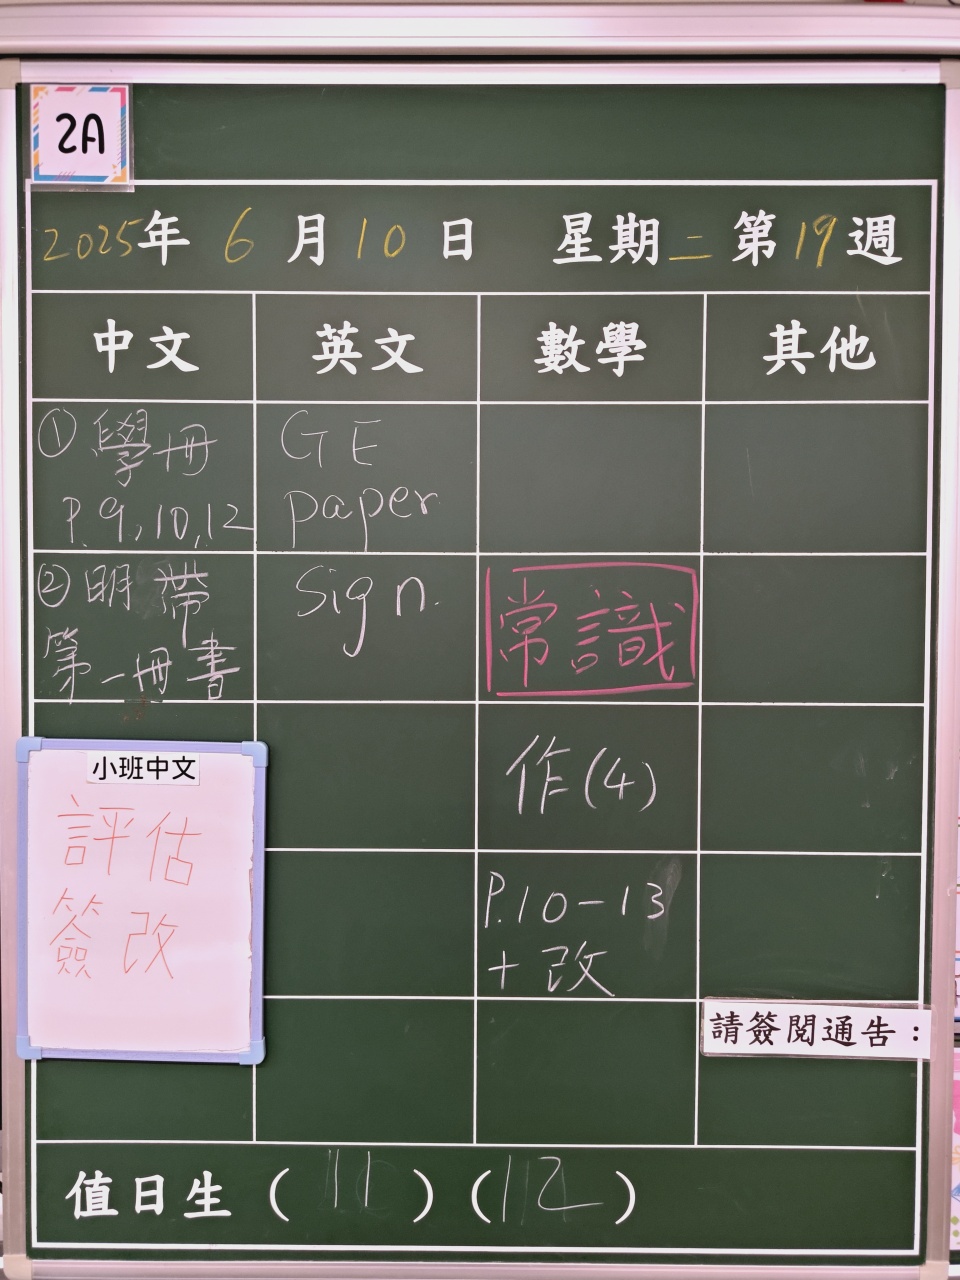 2A
2025年 6月10日 星期二 第19週
中文 英文 數學 其他
①學冊
P.9,10,12
②明帶
第一冊書
GE
paper
Sign.
常識
作(4)
P.10-13
+改
小班中文
評估
簽改
請簽閱通告：
值日生 (11)(12)